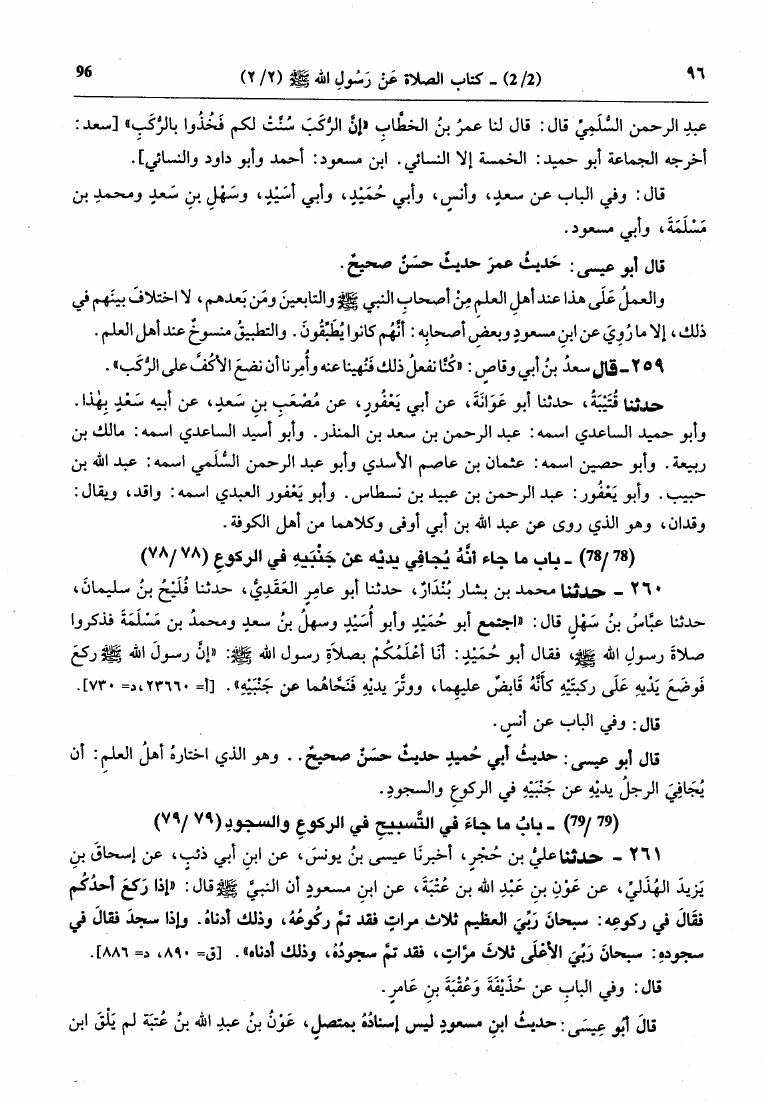 ٩٦ (2/2) ـ كتاب الصلاة عَنْ رَسُولِ الله ﷺ (٢/٢) 96
عبدِ الرحمن السُّلَمِيِّ قال: قال لنا عمرُ بنُ الخطَّابِ «إنَّ الرُّكَبَ سُنَّتْ لكم فَخُذُوا بالرُّكَبِ» [سعد:
أخرجه الجماعة أبو حميد: الخمسة إلا النسائي. ابن مسعود: أحمد وأبو داود والنسائي].
قال: وفي الباب عن سعدٍ، وأنسٍ، وأبي حُمَيْدٍ، وأبي أُسَيْدٍ، وسَهْلِ بنِ سَعدٍ ومحمدِ بن
مَسْلَمَةَ، وأبي مسعود.
قال أبو عيسى: حَديثُ عمرَ حديثٌ حسَنٌ صحيحٌ.
والعملُ عَلَى هذا عند أهلِ العلمِ مِنْ أصحابِ النبي ﷺ والتابعينَ ومَن بَعدهم، لا اختلافَ بينَهم في
ذلك، إلا ما رُوِيَ عن ابنِ مسعودٍ وبعضِ أصحابِه: أنَّهُم كانوا يُطَبِّقُونَ. والتطبيقُ منسوخٌ عند أهل العلم.
٢٥٩ـ قال سعدُ بنُ أبي وقاصٍ: «كُنَّا نفعلُ ذلك فَنُهِينا عنه وأُمِرنا أن نضعَ الأكُفَّ على الرُّكَبِ».
حدثنا قُتَيْبَةُ، حدثنا أبو عَوَانَةَ، عن أبي يَعْفُورٍ، عن مُصْعَبِ بنِ سَعدٍ، عن أبيه سَعْدٍ بِهٰذا.
وأبو حميد الساعدي اسمه: عبد الرحمن بن سعد بن المنذر. وأبو أسيد الساعدي اسمه: مالك بن
ربيعة. وأبو حصين اسمه: عثمان بن عاصم الأسدي وأبو عبد الرحمن السُّلَمي اسمه: عبد الله بن
حبيب. وأبو يَعْفُور: عبد الرحمن بن عبيد بن نسطاس. وأبو يَعْفور العبدي اسمه: واقد، ويقال:
وقدان، وهو الذي روى عن عبد الله بن أبي أوفى وكلاهما من أهل الكوفة.
(78/78) ـ باب ما جاء أنَّهُ يُجافِي يديْه عن جَنْبَيهِ في الركوعِ (٧٨/٧٨)
٢٦٠ ـ حدثنا محمد بن بشار بُنْدَارٌ، حدثنا أبو عامرٍ العَقَدِيُّ، حدثنا فُلَيْحُ بنُ سليمانَ،
حدثنا عبَّاسُ بنُ سَهْلٍ قال: «اجتمع أبو حُمَيْدٍ وأبو أُسَيْدٍ وسهلُ بنُ سعدٍ ومحمدُ بن مَسْلَمَةَ فذكروا
صلاةَ رسولِ الله ﷺ، فقال أبو حُمَيْدٍ: أنَا أعْلَمُكُمْ بصلاةِ رسول الله ﷺ: «إنَّ رسولَ الله ﷺ ركعَ
فَوضَعَ يَدْيهِ عَلَى ركبتَيْهِ كأنَّهُ قابضٌ عليهما، ووتَّرَ يديْهِ فَنَحَّاهُما عن جَنْبَيْهِ». [أ= ٢٣٦٦٠، د= ٧٣٠].
قال: وفي الباب عن أنسٍ.
قال أبو عيسى: حديثُ أبي حُميدٍ حديثٌ حسَنٌ صحيحٌ.. وهو الذي اختارهُ أهلُ العلمِ: أن
يُجَافِيَ الرجلُ يديْهِ عن جَنْبَيْهِ في الركوعِ والسجودِ.
(79/79) ـ بابُ ما جاءَ في التَّسبيحِ في الركوعِ والسجودِ (٧٩/٧٩)
٢٦١ ـ حدثنا عليُّ بن حُجْرٍ، أخبرنَا عيسى بنُ يونسَ، عن ابنِ أبي ذئبٍ، عن إسحاقَ بنِ
يَزِيدَ الهُذَليِّ، عن عَوْنِ بنِ عَبْدِ الله بن عُتْبَةَ، عن ابنِ مسعودٍ أن النبيَّ ﷺ قال: «إذا رَكعَ أحدُكُم
فقَالَ في ركوعِه: سبحانَ رَبِّيَ العظيمِ ثلاثَ مراتٍ فقد تمَّ ركُوعُهُ، وذلك أدناهُ. وإذا سجدَ فقالَ في
سجودِهِ: سبحانَ رَبِّيَ الأعْلَى ثلاثَ مرَّاتٍ، فقد تمَّ سجودُهُ، وذلك أدناه». [ق= ٨٩٠، د= ٨٨٦].
قال: وفي البابِ عن حُذَيْفَةَ وَعُقْبَةَ بنِ عَامرٍ.
قالَ أبُو عِيسَى: حديثُ ابنِ مسعودٍ ليس إسنادُهُ بمتصلٍ، عَوْنُ بنُ عبدِ الله بنُ عُتبَة لم يَلْقَ ابن